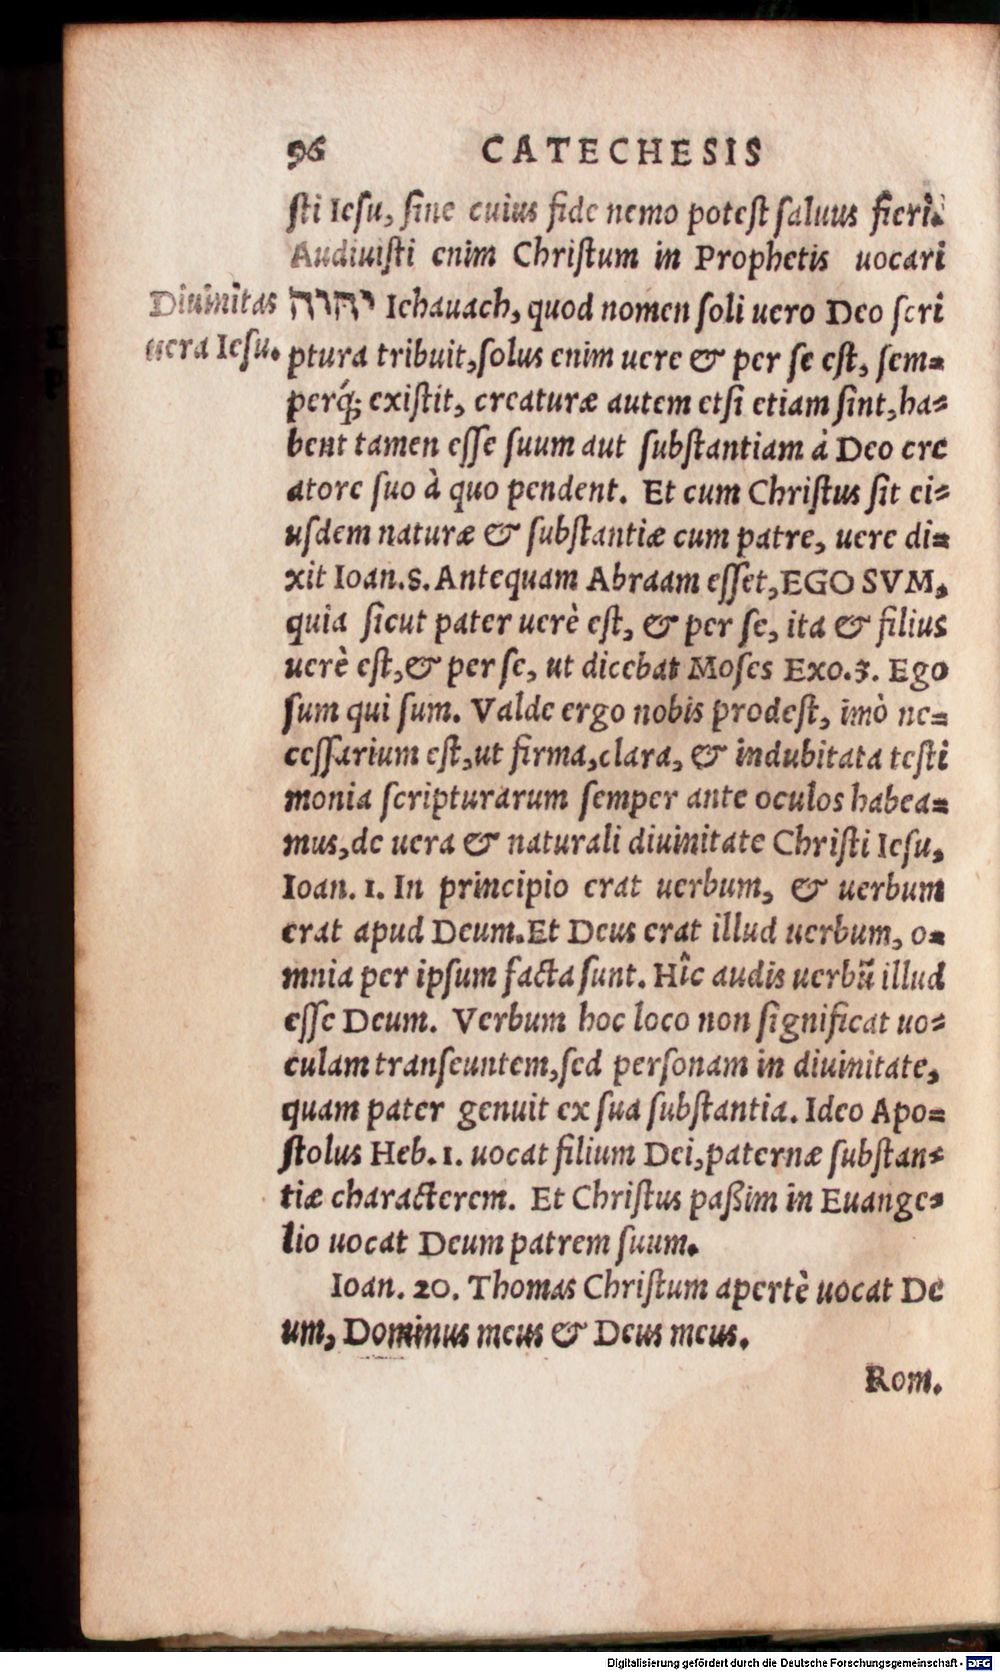 96 CATECHESIS
sti Iesu, sine cuius fide nemo potest saluus fieri.
Audiuisti enim Christum in Prophetis uocari
Diuinitas
uera Iesu.
יהוה Iehauach, quod nomen soli uero Deo scri
ptura tribuit, solus enim uere & per se est, sem=
perq́; existit, creaturæ autem etsi etiam sint, ha=
bent tamen esse suum aut substantiam à Deo cre
atore suo à quo pendent. Et cum Christus sit ei=
usdem naturæ & substantiæ cum patre, uere di=
xit Ioan. 8. Antequam Abraam esset, EGO SVM,
quia sicut pater uerè est, & per se, ita & filius
uerè est, & per se, ut dicebat Moses Exo. 3. Ego
sum qui sum. Valde ergo nobis prodest, imò ne=
cessarium est, ut firma, clara, & indubitata testi
monia scripturarum semper ante oculos habea=
mus, de uera & naturali diuinitate Christi Iesu,
Ioan. 1. In principio erat uerbum, & uerbum
erat apud Deum. Et Deus erat illud uerbum, o=
mnia per ipsum facta sunt. Hîc audis uerbũ illud
esse Deum. Verbum hoc loco non significat uo=
culam transeuntem, sed personam in diuinitate,
quam pater genuit ex sua substantia. Ideo Apo=
stolus Heb. 1. uocat filium Dei, paternæ substan=
tiæ characterem. Et Christus paßim in Euange=
lio uocat Deum patrem suum.
Ioan. 20. Thomas Christum apertè uocat De
um, Dominus meus & Deus meus.
Rom.
Digitalisierung gefördert durch die Deutsche Forschungsgemeinschaft - DFG